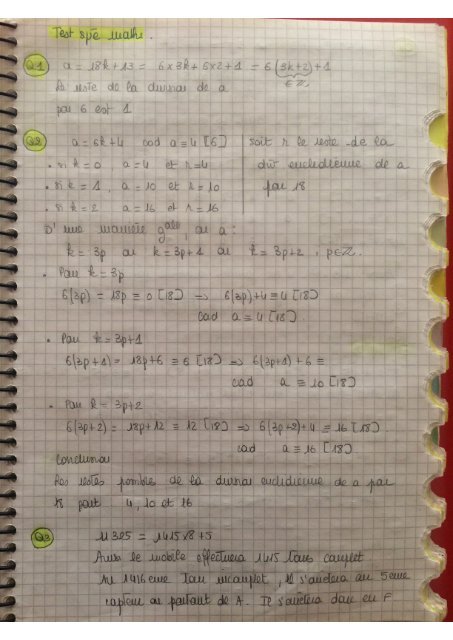 Test spé maths.
Q1 a = 18k + 13 = 6×3k + 6×2 + 1 = 6(3k+2) + 1
∈ ℤ
Le reste de la division de a
par 6 est 1
Q2 a = 6k+4 cad a ≡ 4 [6] soit r le reste de la
• si k = 0, a = 4 et r = 4 div euclidienne de a
• si k = 1, a = 10 et r = 10 par 18
• si k = 2 a = 16 et r = 16
D'une manière gale, on a :
k = 3p ou k = 3p+1 ou k = 3p+2, p∈ℤ.
• Pour k = 3p
6(3p) = 18p ≡ 0 [18] => 6(3p)+4 ≡ 4 [18]
cad a ≡ 4 [18].
• Pour k = 3p+1
6(3p+1) = 18p+6 ≡ 6 [18] => 6(3p+1) + 6 ≡
cad a ≡ 10 [18]
• Pour k = 3p+2
6(3p+2) = 18p+12 ≡ 12 [18] => 6(3p+2)+4 ≡ 16 [18].
cad a ≡ 16 [18]
Conclusion
Les restes possibles de la division euclidienne de a par
18 sont : 4, 10 et 16
Q3 11325 = 1415×8+5
Ainsi le mobile effectuera 1415 tours complet
1416eme Tour incomplet, il s'arrêtera au 5eme
capteur en partant de A. Il s'arrêtera donc en F